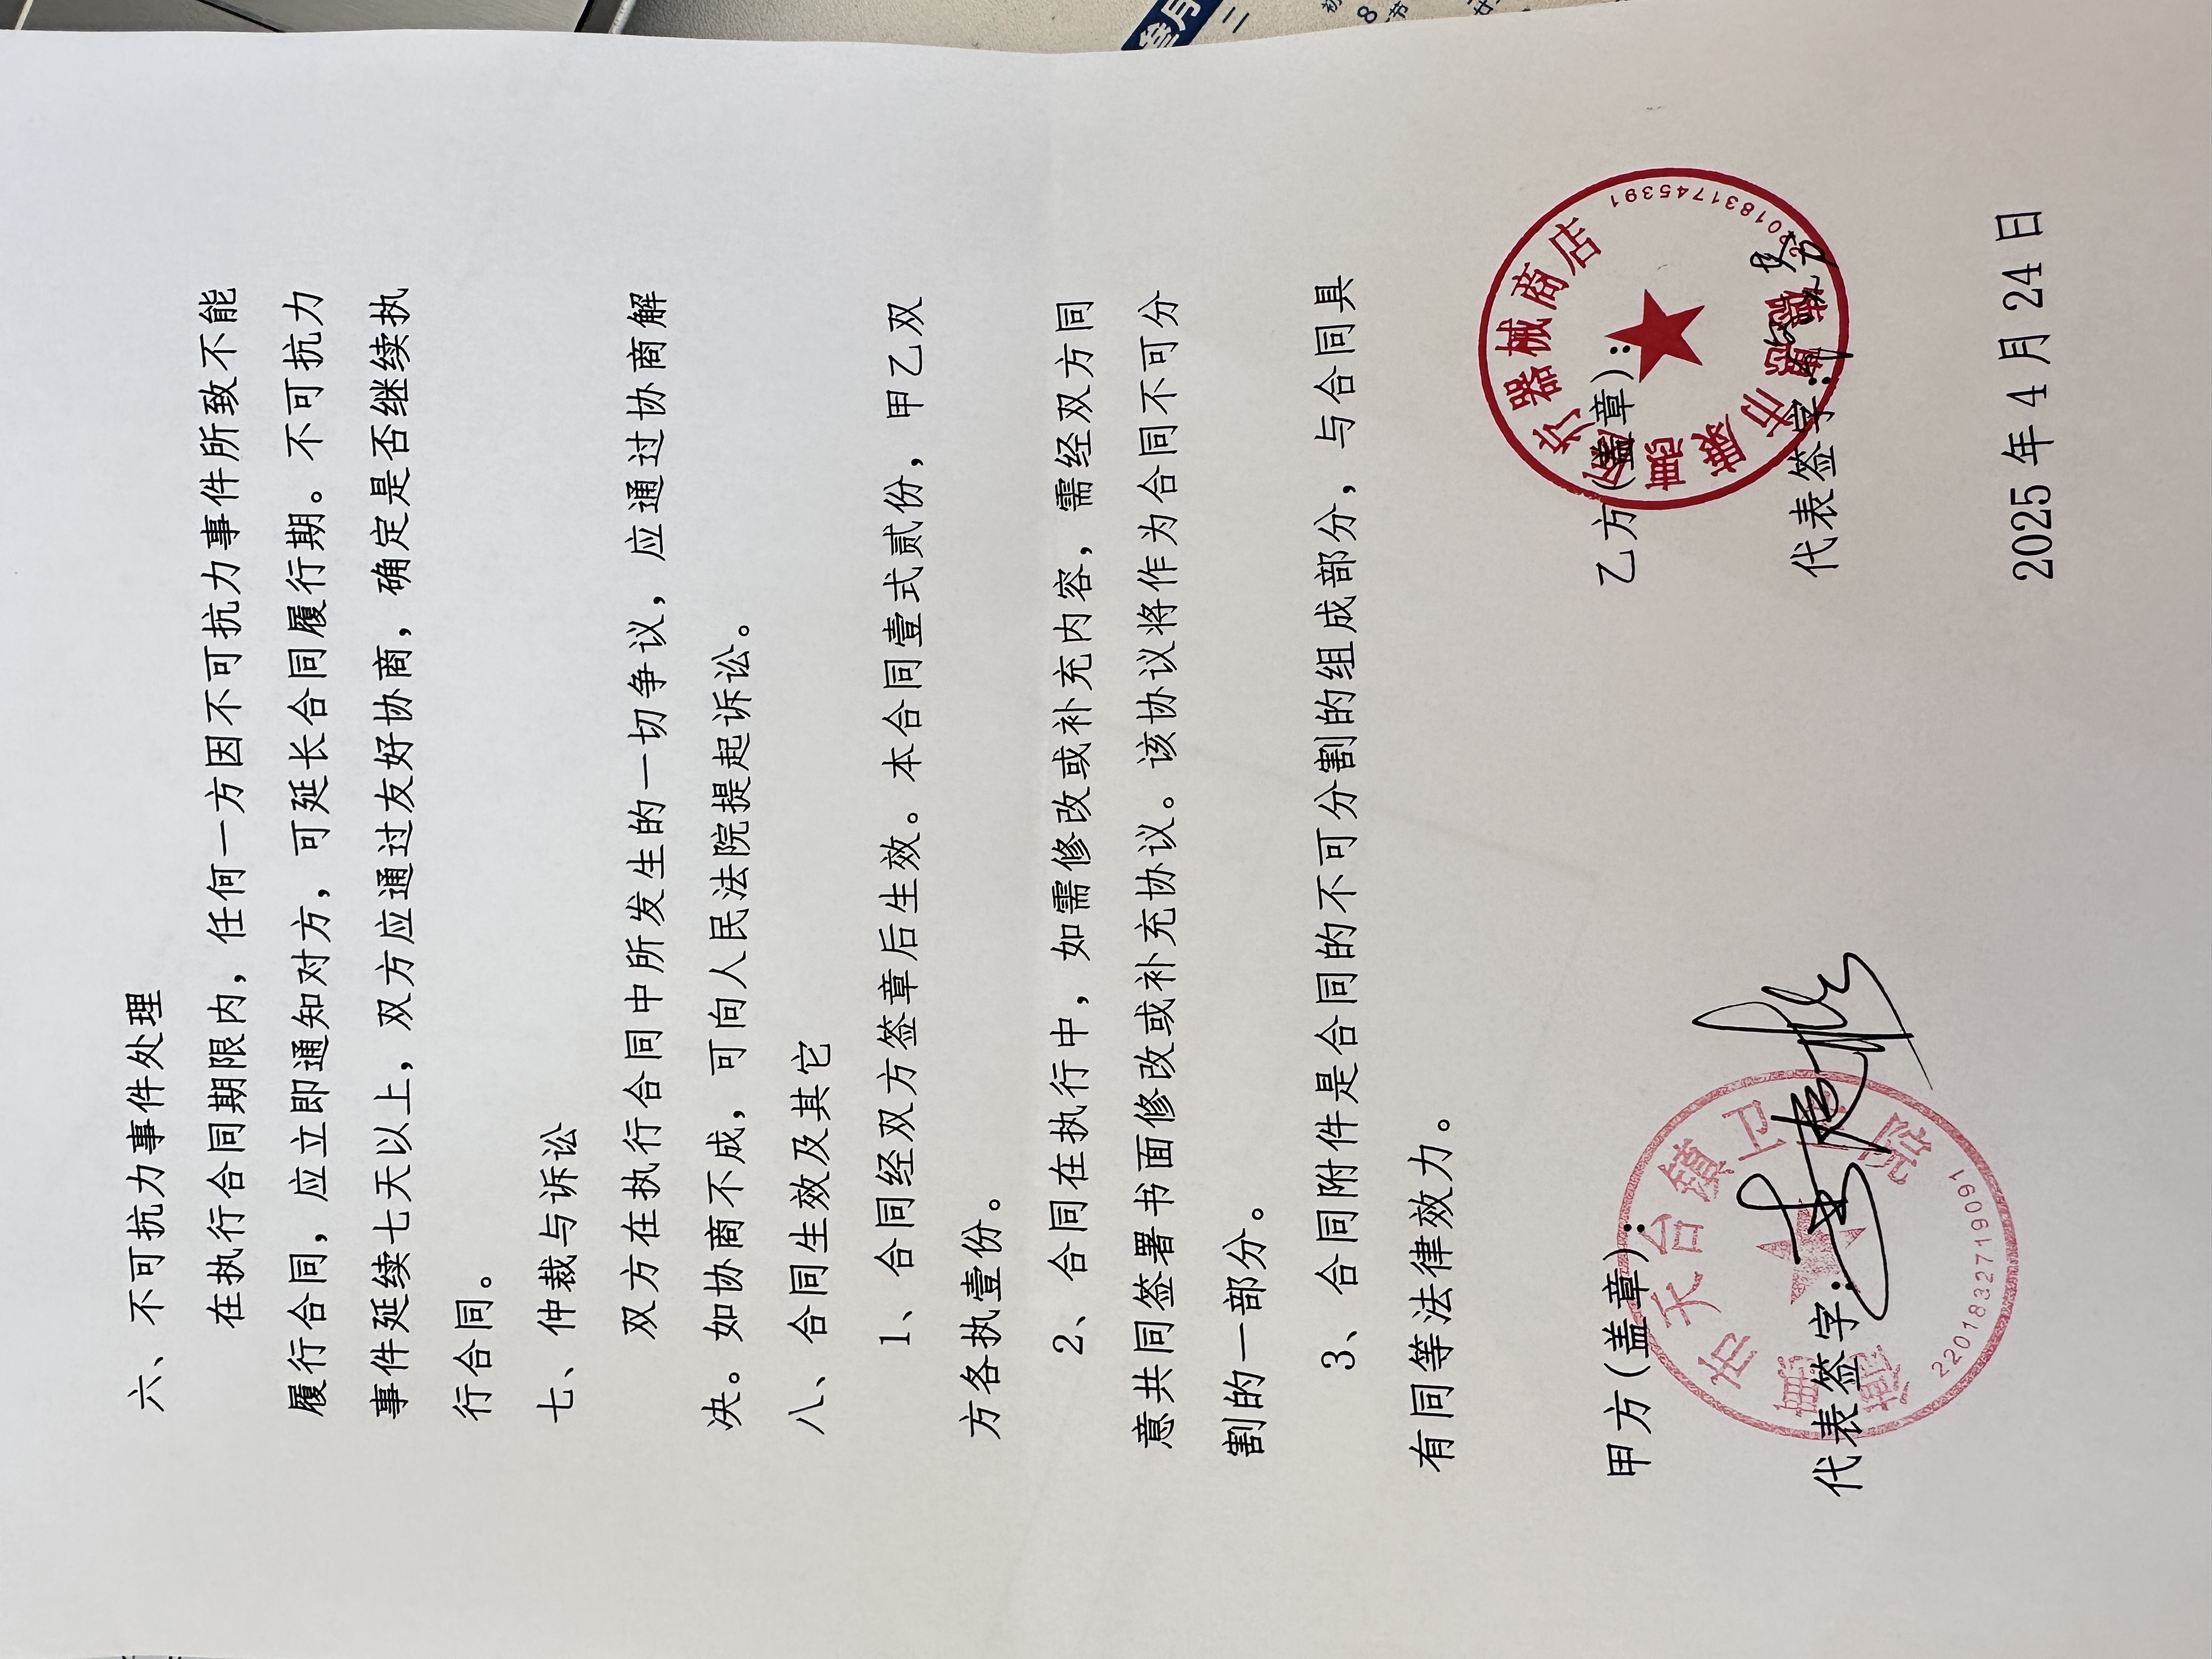 六、不可抗力事件处理
在执行合同期限内，任何一方因不可抗力事件所致不能
履行合同，应立即通知对方，可延长合同履行期。不可抗力
事件延续七天以上，双方应通过友好协商，确定是否继续执
行合同。
七、仲裁与诉讼
双方在执行合同中所发生的一切争议，应通过协商解
决。如协商不成，可向人民法院提起诉讼。
八、合同生效及其它
1、合同经双方签章后生效。本合同壹式贰份，甲乙双
方各执壹份。
2、合同在执行中，如需修改或补充内容，需经双方同
意共同签署书面修改或补充协议。该协议将作为合同不可分
割的一部分。
3、合同附件是合同的不可分割的组成部分，与合同具
有同等法律效力。
甲方（盖章）：
乙方（盖章）：
代表签字：
代表签字：
2025 年 4 月 24 日
天台镇卫
2201832719091
疗器械商店
2201831745391
叁月
三
8